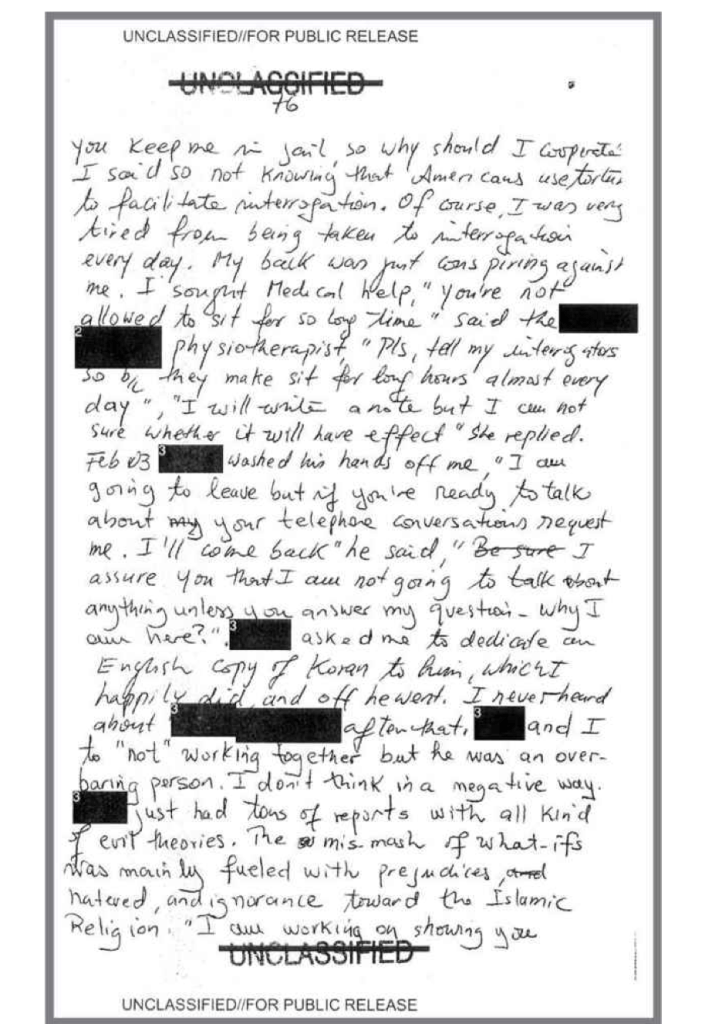 UNCLASSIFIED//FOR PUBLIC RELEASE
UNCLASSIFIED
76
you keep me in jail, so why should I cooperate
I said so not knowing that Americans use tortur
to facilitate interrogation. Of course, I was very
tired from being taken to interrogation
every day. My back was just conspiring against
me. I sought Medical help, "you're not
allowed to sit for so long time" said the
2
physiotherapist, "Pls, tell my interrogators
so b/c they make sit for long hours almost every
day", "I will write a note but I am not
sure whether it will have effect" She replied.
Feb 03 3 washed his hands off me, "I am
going to leave but if you're ready to talk
about my your telephone conversations request
me. I'll come back" he said, "Be sure I
assure you that I am not going to talk about
anything unless you answer my question - why I
am here?". 3 asked me to dedicate an
English copy of Koran to him, which I
happily did, and off he went. I never heard
about 3 after that. 3 and I
to "not" working together but he was an over-
baring person. I don't think in a negative way.
3 just had tons of reports with all kind
of evil theories. The mis-mash of what-ifs
was mainly fueled with prejudices, and
hatered, and ignorance toward the Islamic
Religion. "I am working on showing you
UNCLASSIFIED
UNCLASSIFIED//FOR PUBLIC RELEASE